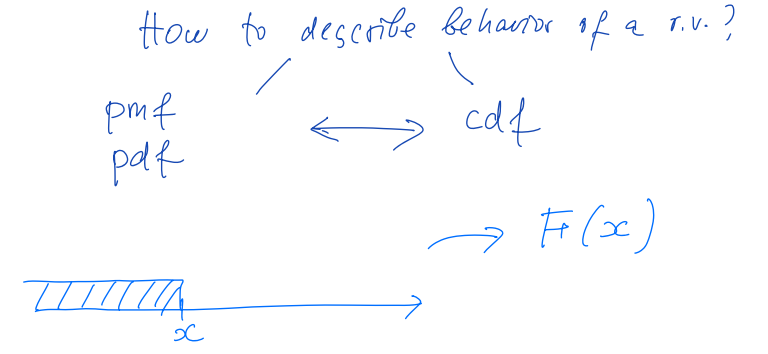 How to describe behavior of a r.v.?
pmf
cdf
pdf
F(x)
x